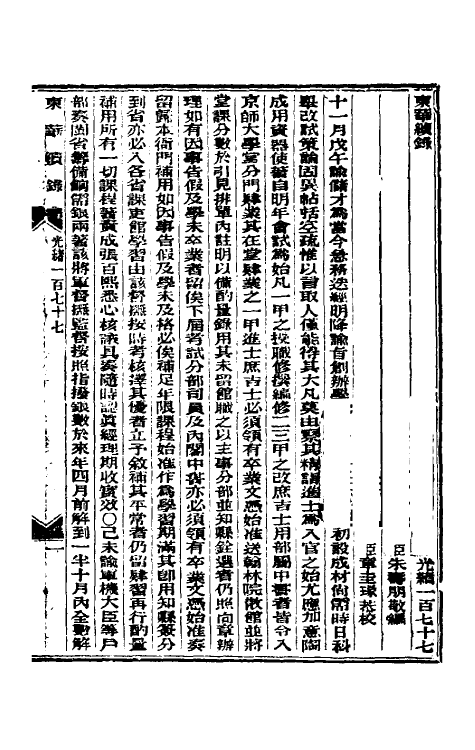 東華續錄 光緒一百七十七
臣朱壽朋敬編
臣章圭瑑恭校
十一月戊午諭儲才爲當今急務迭經明降諭旨創辦學 初設成材尚需時日科
舉改試策論固異帖括空疏惟以言取人僅能得其大凡莫由察其精詣進士爲入官之始尤應加意陶
成用資器使著自明年會試爲始凡一甲之授職修撰編修二三甲之改庶吉士用部屬中書者皆令入
京師大學堂分門肄業其在堂肄業之一甲進士庶吉士必須領有卒業文憑始准送翰林院散館並將
堂課分數於引見排單內註明以備酌量錄用其未留館職之以主事分部並知縣銓選者仍照向章辦
理如有因事告假及學未卒業者留俟下屆考試分部司員及內閣中書亦必須領有卒業文憑始准奏
留歸本衙門補用如因事告假及學未及格必俟補足年限課程始准作爲學習期滿其即用知縣簽分
到省亦必入各省課吏館學習由該督撫按時考核擇其優者立予敘補其平常者仍留肄習再行酌量
補用所有一切課程著責成張百熙悉心核議具奏隨時認眞經理期收實效○己未諭軍機大臣等戶
部奏閩省籌備餉需銀兩著該將軍督撫監督按照指撥銀數於來年四月前解到一半十月內全數解
東華續錄 光緒一百七十七